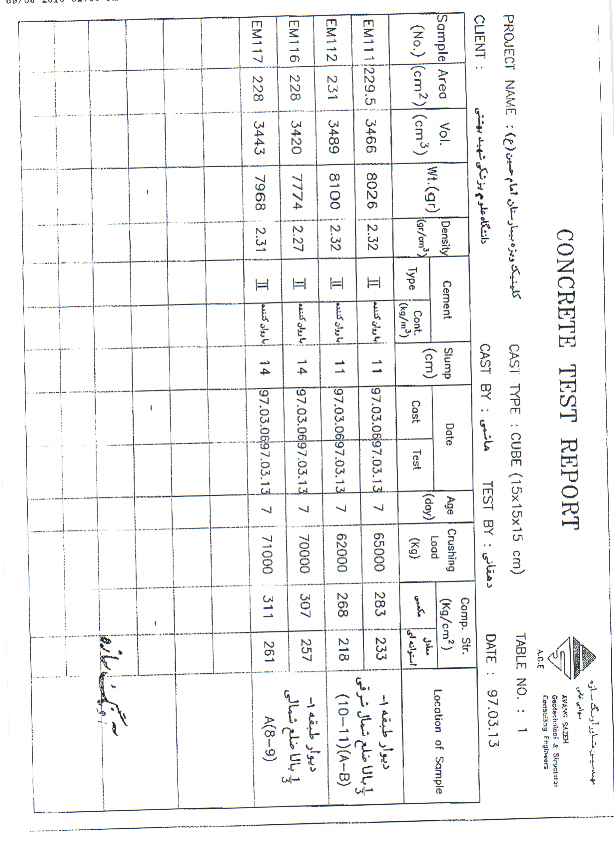 CONCRETE TEST REPORT
A.C.E
مهندسین مشاور آونگ سازه
AVANG SAZEH
Geotechnical & Structural
Consulting Engineers
PROJECT NAME : کلینیک ویژه بیمارستان امام حسین (ع) CAST TYPE : CUBE (15x15x15 cm) TABLE NO. : 1
CLIENT : دانشگاه علوم پزشکی شهید بهشتی CAST BY : هاشمی TEST BY : دهقانی DATE : 97.03.13
Sample (No.) Area (cm²) Vol. (cm³) Wt.(gr) Density (gr/cm³) Cement Type Cont. (kg/m³) Slump (cm) Date Cast Test Age (day) Crushing Load (Kg) Comp. Str. (Kg/cm²) مکعبی معادل استوانه ای Location of Sample
EM111 229.5 3466 8026 2.32 II 11 97.03.06 97.03.13 7 65000 283 233 دیوار طبقه ۱-
EM112 231 3489 8100 2.32 II 11 97.03.06 97.03.13 7 62000 268 218 1/3 بالا ضلع شمال شرقی (10-11)(A-B)
EM116 228 3420 7774 2.27 II 14 97.03.06 97.03.13 7 70000 307 257 دیوار طبقه ۱-
EM117 228 3443 7968 2.31 II 14 97.03.06 97.03.13 7 71000 311 261 1/3 بالا ضلع شمالی A(8-9)